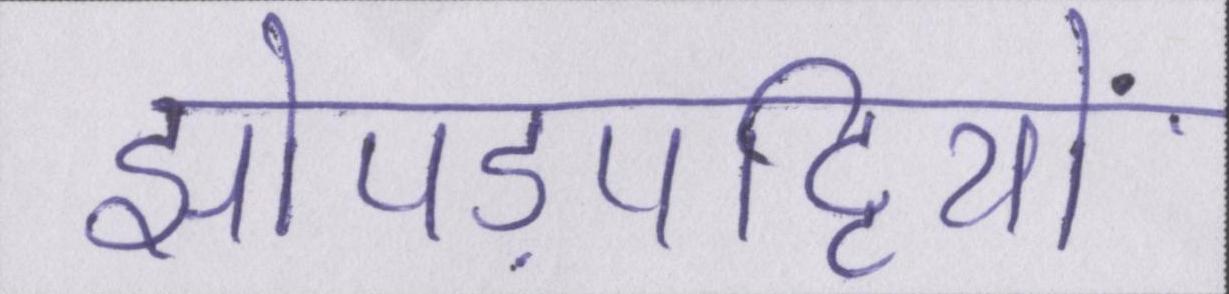 झोपड़पट्टियों